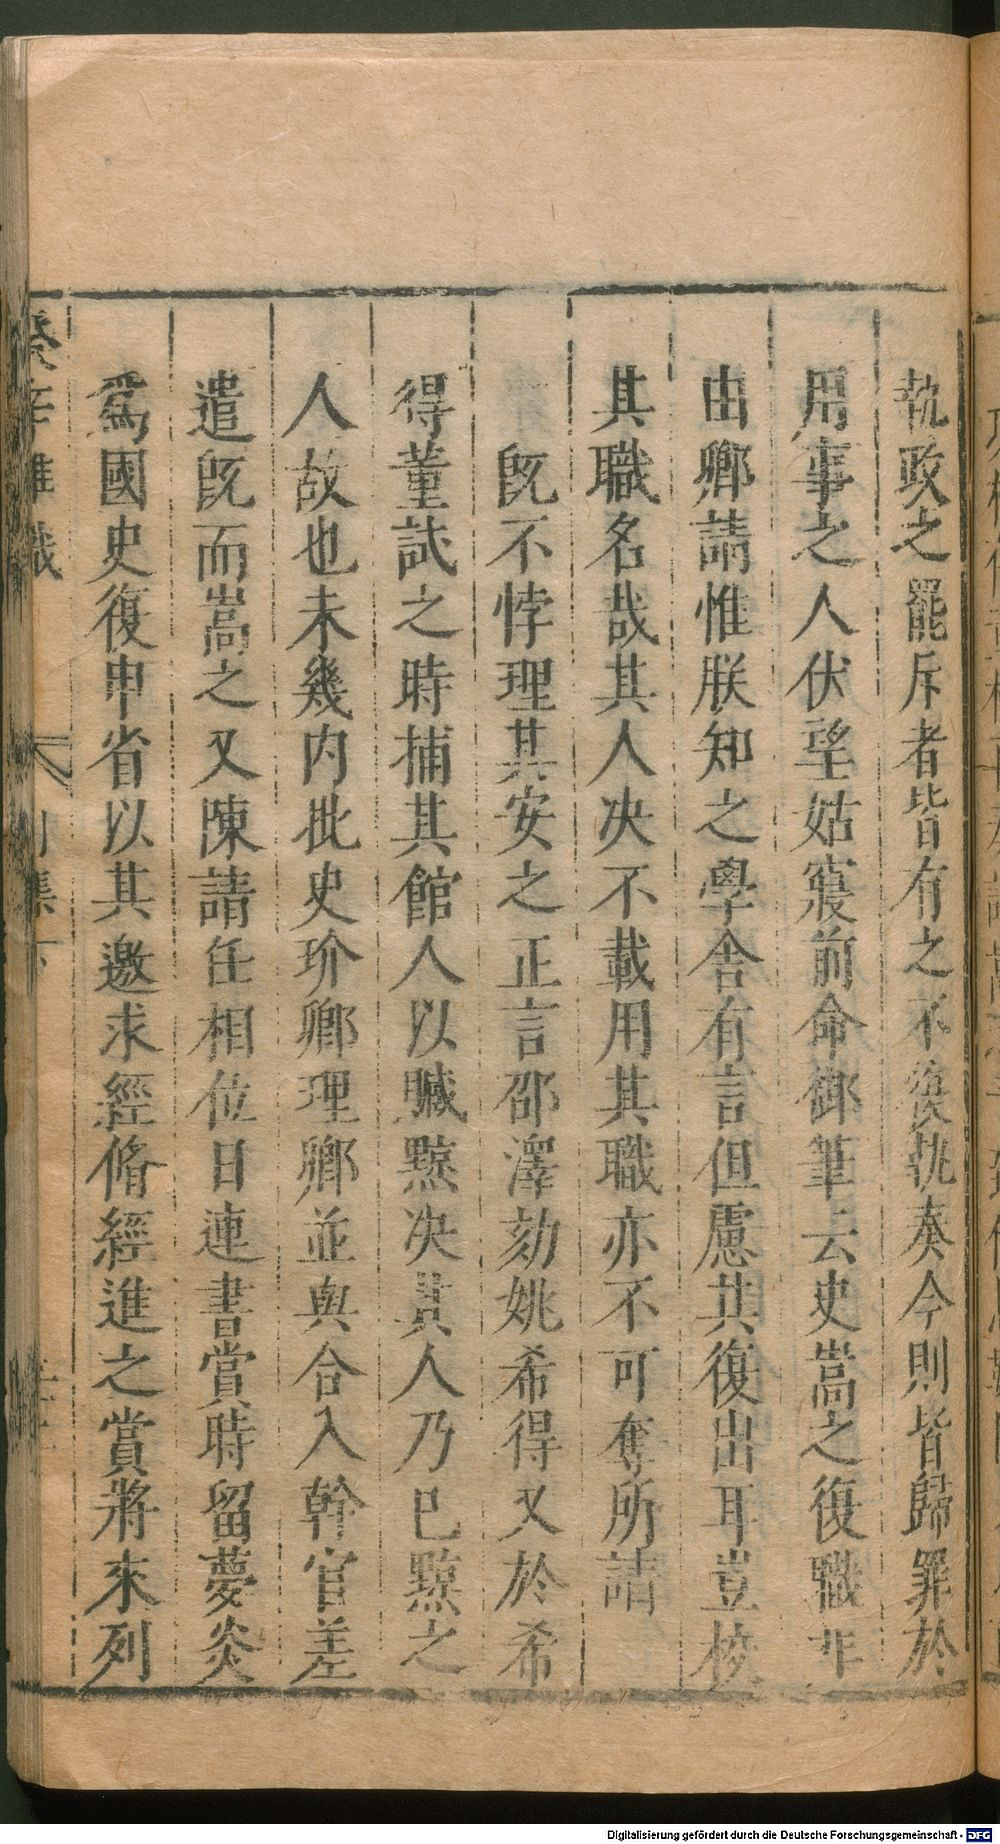 執政之罷斥者皆有之不俟執奏今則皆歸罪於
用事之人伏望姑寢前命御筆云史嵩之復職非
由卿請惟朕知之學舍有言但慮其復出耳豈校
其職名哉其人决不載用其職亦不可奪所請
旣不悖理其安之正言邵澤劾姚希得又於希
得董試之時捕其館人以贓黥决其人乃已黥之
人故也未幾内批史玠卿理卿並與合入幹官差
遣旣而嵩之又陳請任相位日連書賞時留夢炎
爲國史復申省以其邀求經脩經進之賞將來列
癸辛雜識
別集下
Digitalisierung gefördert durch die Deutsche Forschungsgemeinschaft - DFG